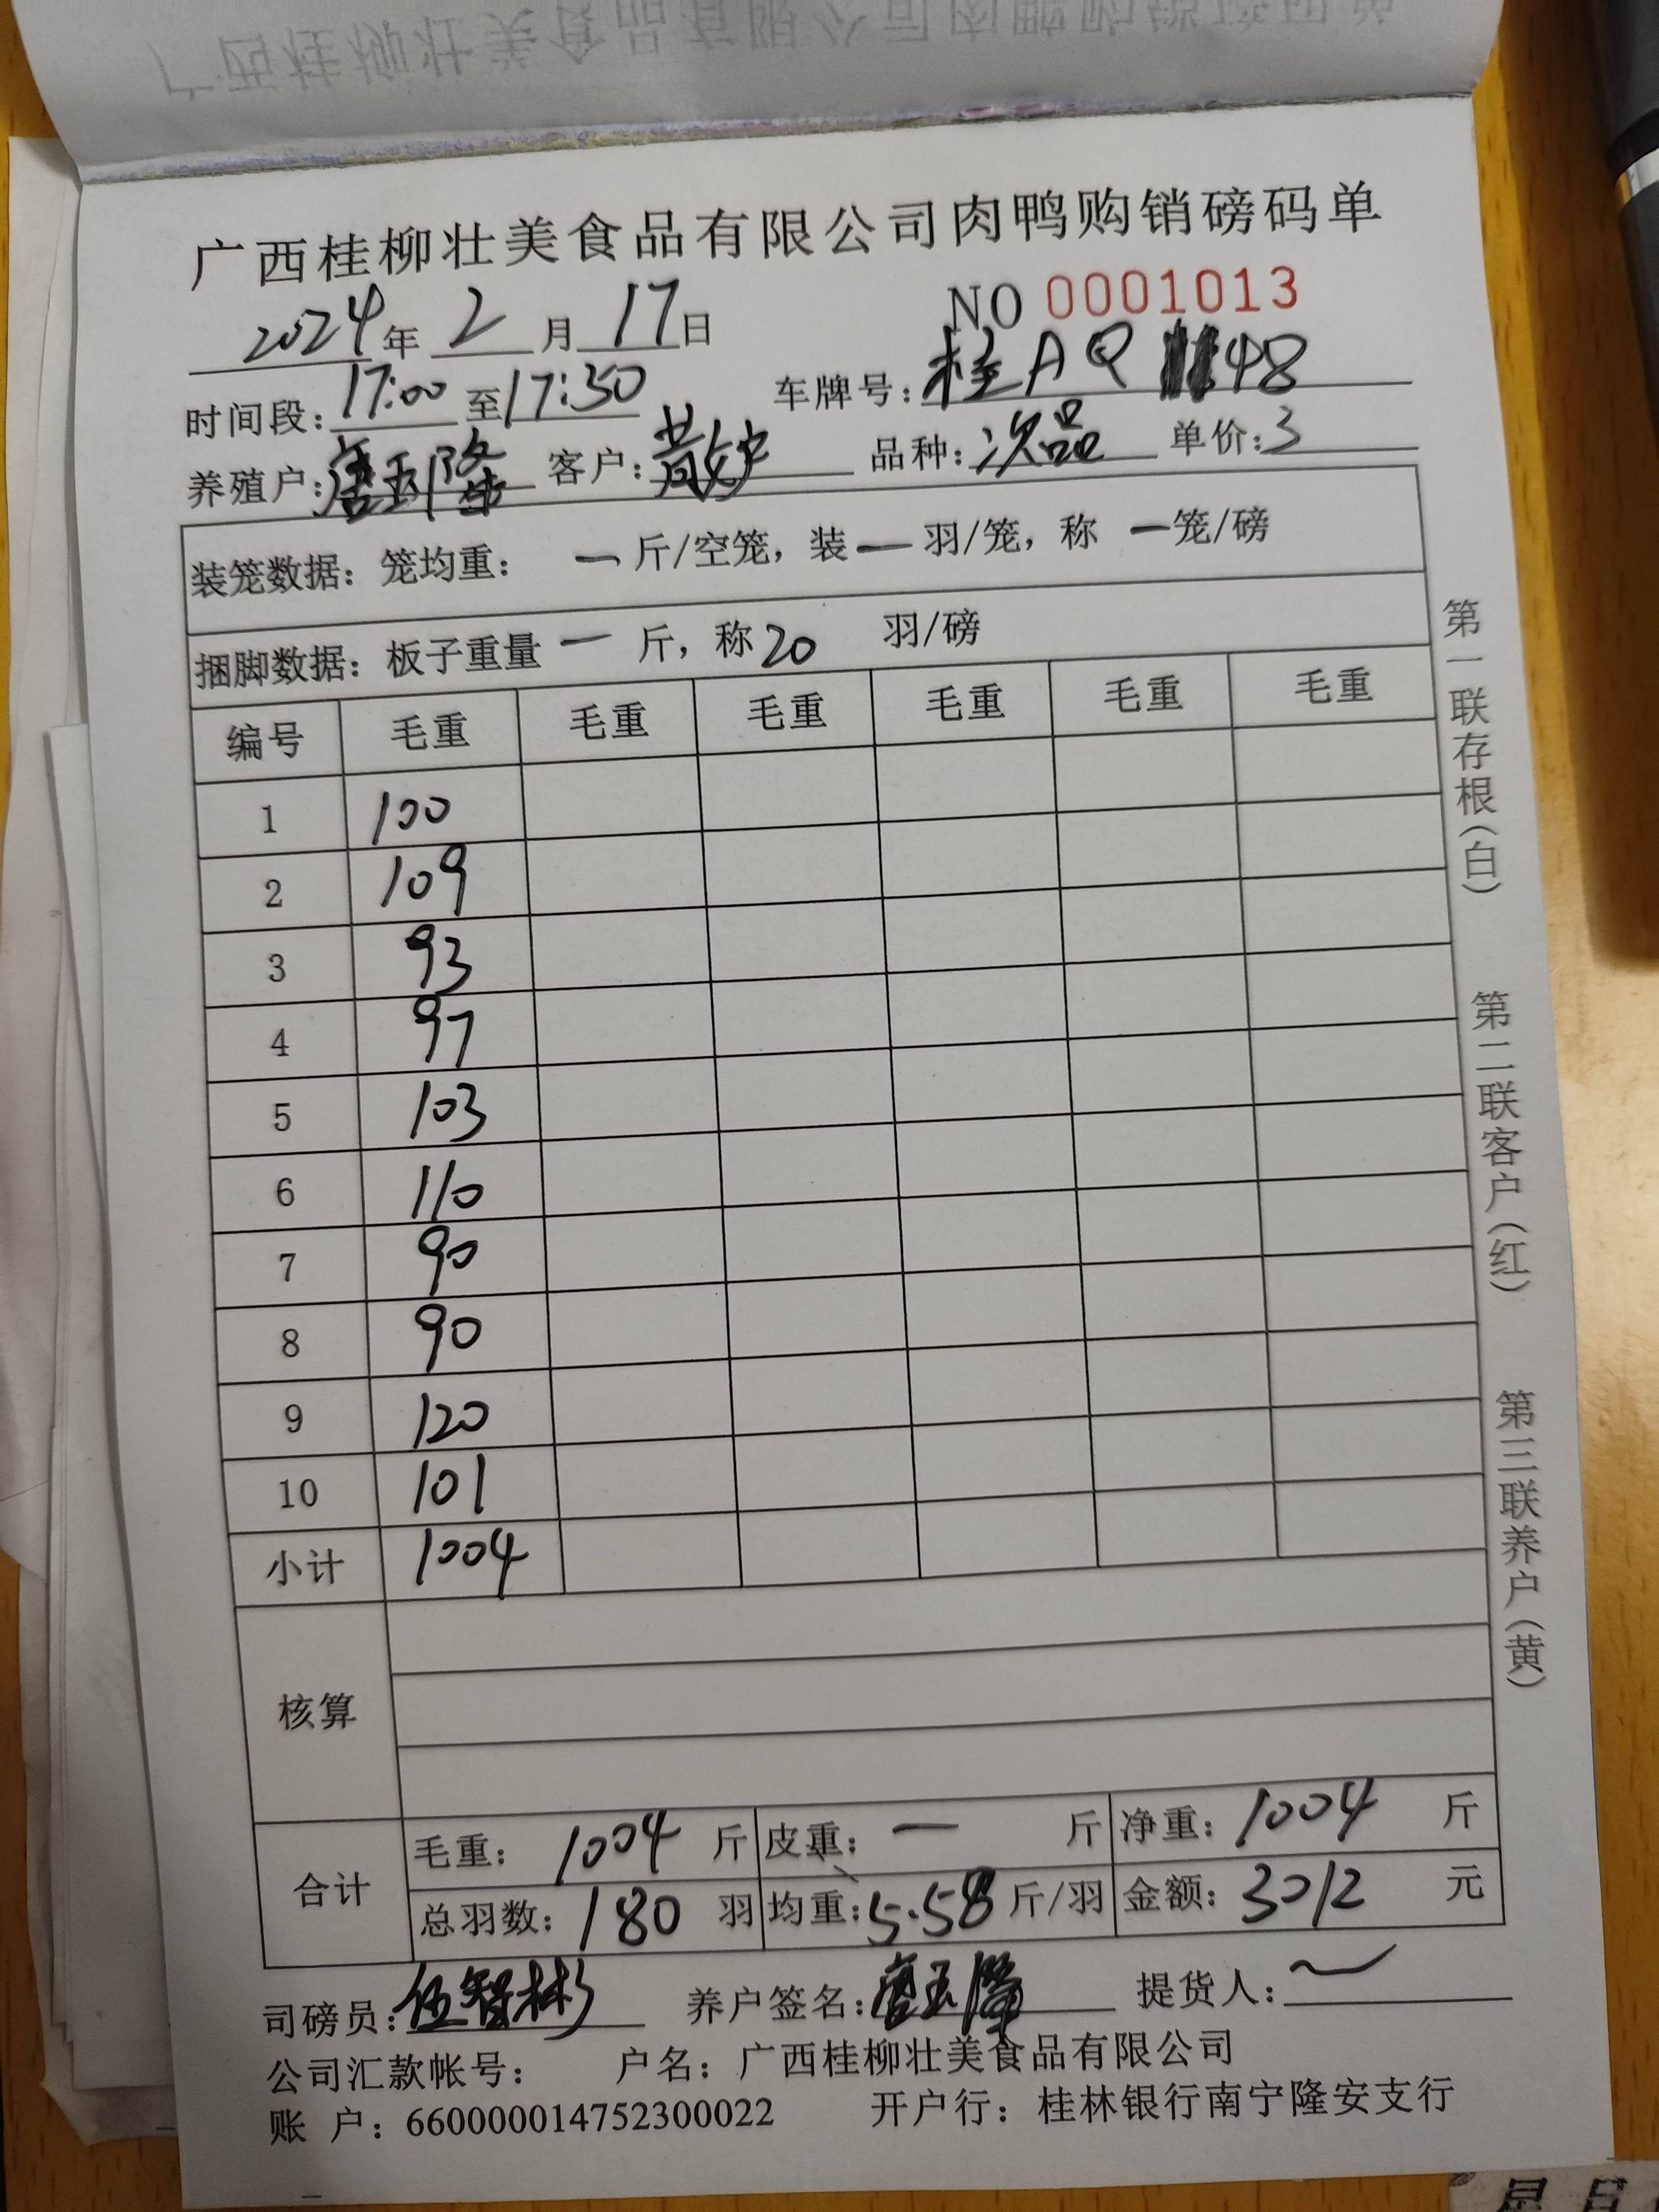 广西桂柳壮美食品有限公司肉鸭购销磅码单
2024年 2 月 17日 NO 0001013
时间段：17:00 至 17:30 车牌号：桂AQ 48
养殖户：唐玉隆 客户：散户 品种：次品 单价：3
装笼数据：笼均重： — 斤/空笼，装 — 羽/笼，称 — 笼/磅
捆脚数据：板子重量 — 斤，称 20 羽/磅
编号 毛重 毛重 毛重 毛重 毛重 毛重
1 100
2 109
3 93
4 97
5 103
6 110
7 90
8 90
9 120
10 101
小计 1004
核算
合计 毛重： 1004 斤 皮重： — 斤 净重： 1004 斤
总羽数： 180 羽 均重：5.58 斤/羽 金额： 3012 元
司磅员：伍智彬 养户签名：唐玉隆 提货人：
公司汇款帐号： 户名：广西桂柳壮美食品有限公司
账 户：660000014752300022 开户行：桂林银行南宁隆安支行
第一联存根（白） 第二联客户（红） 第三联养户（黄）